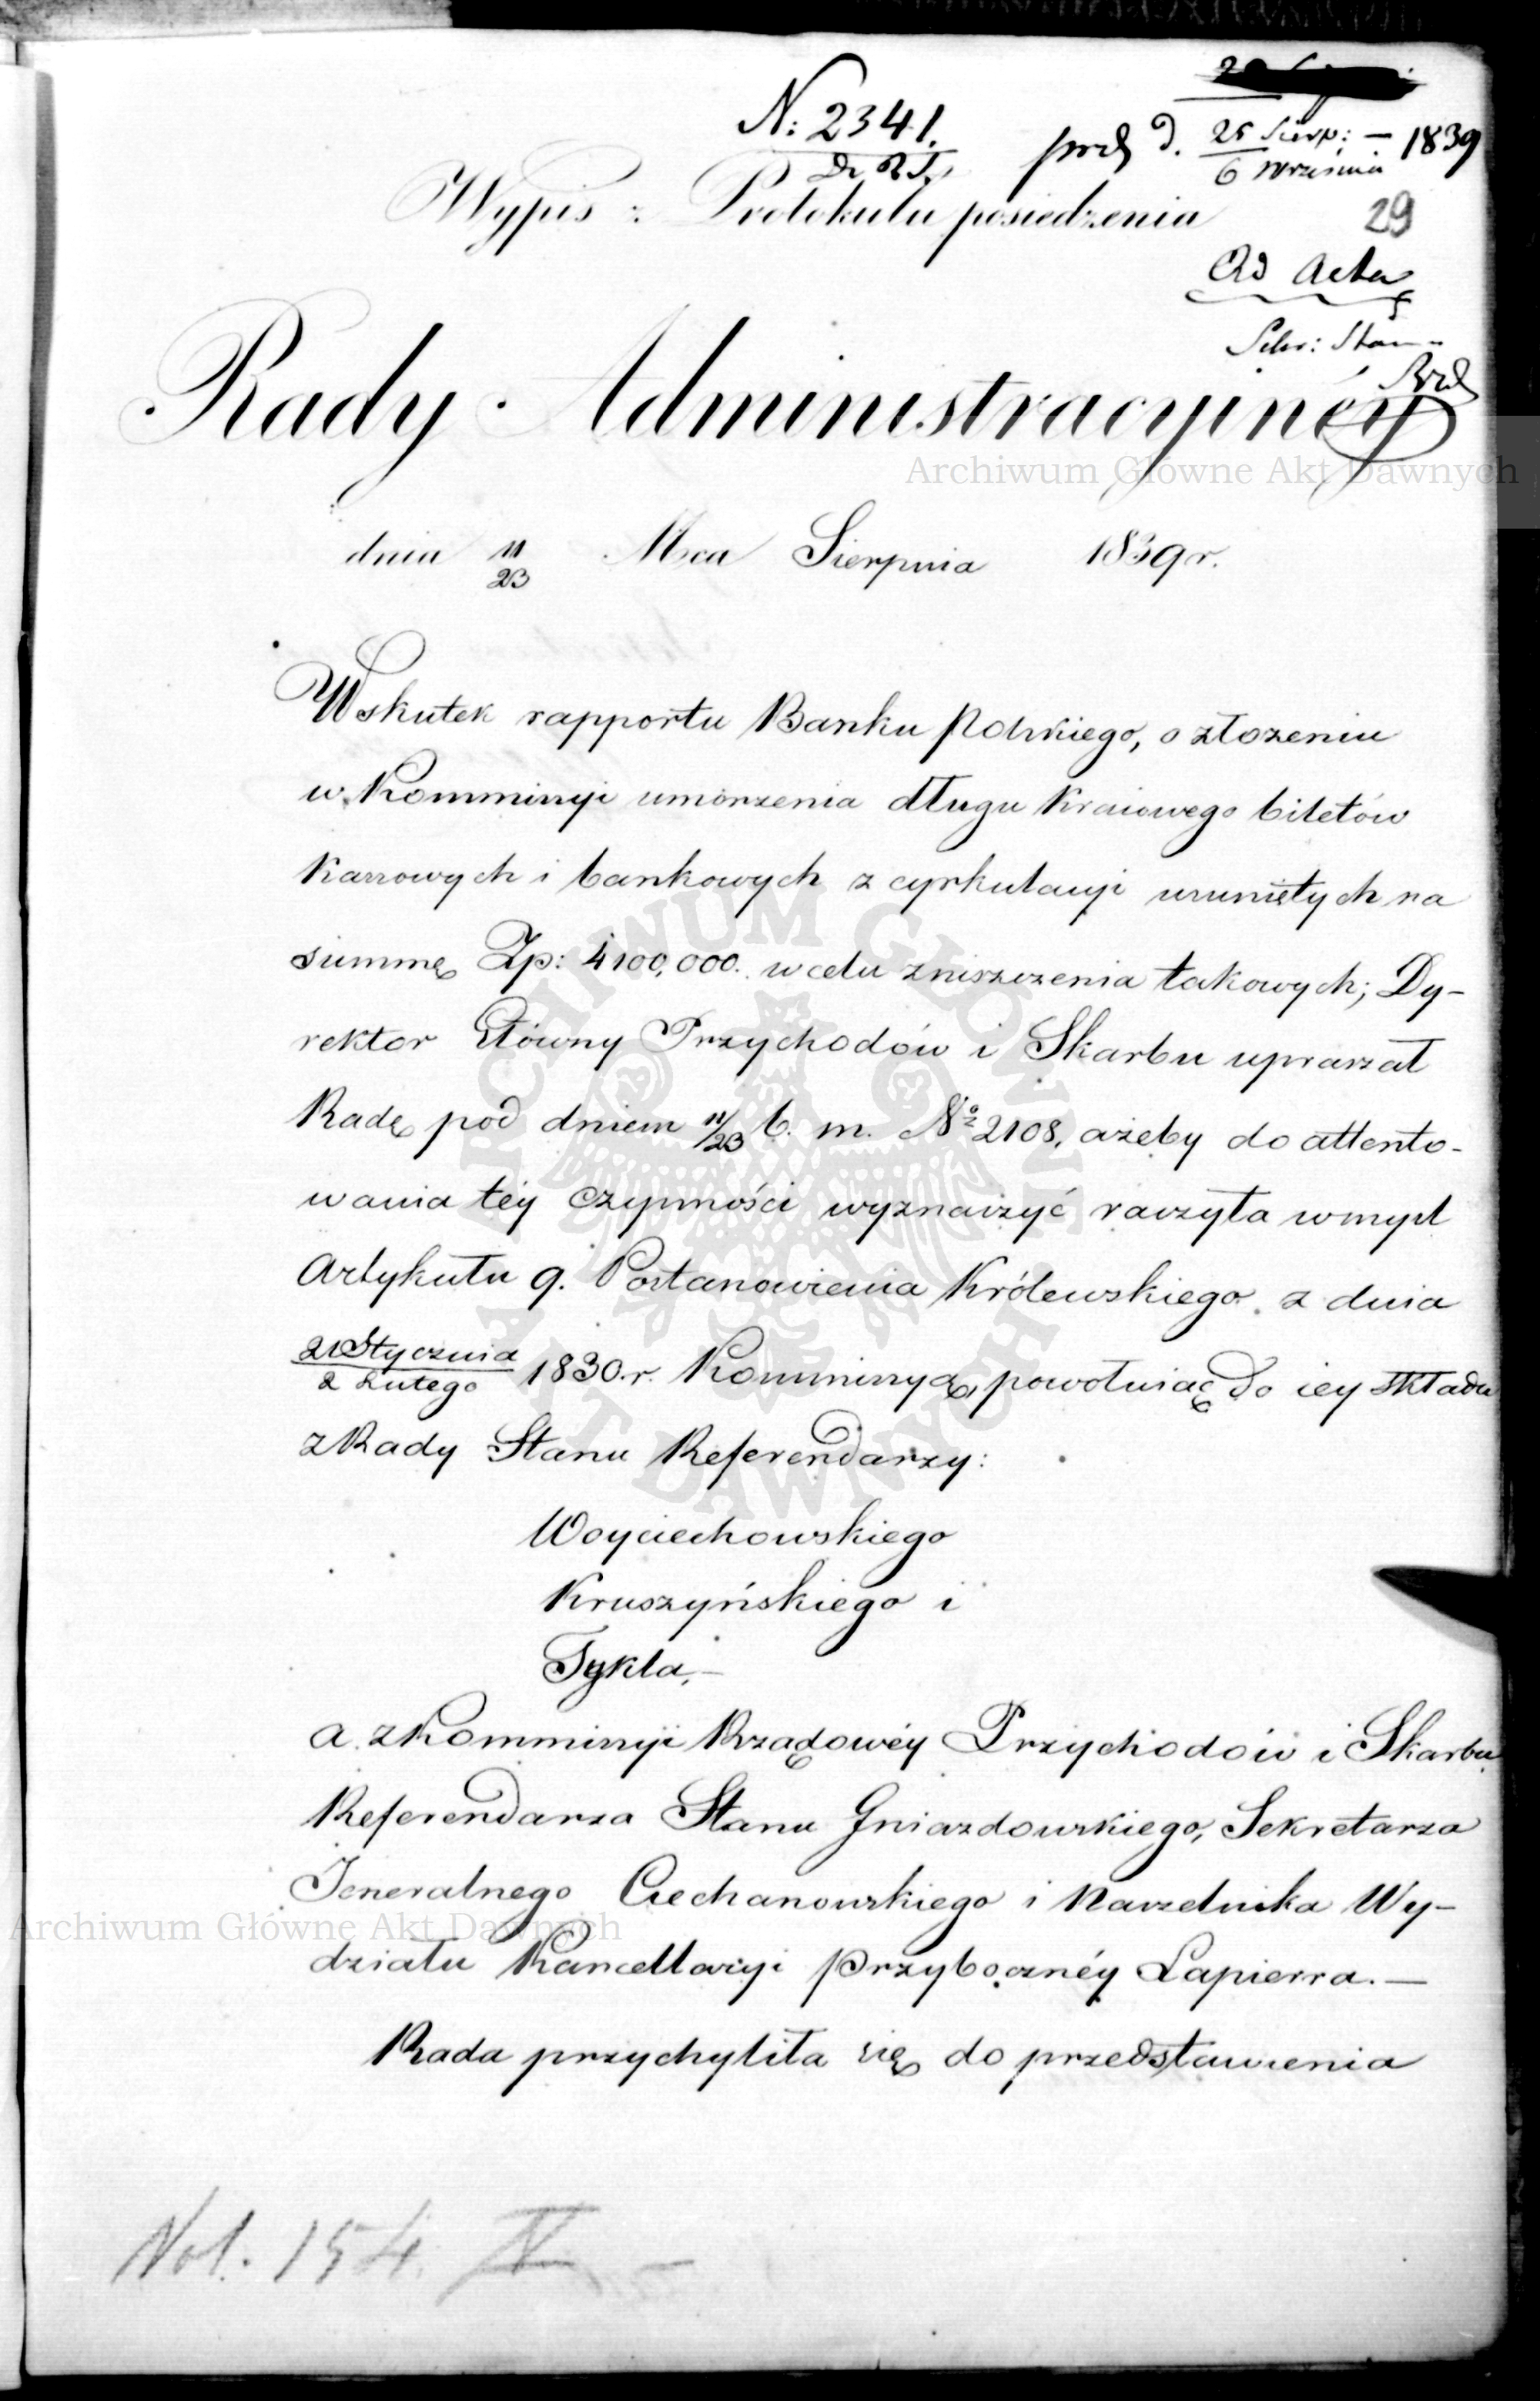 N: 2341.
prez d. 25 Sierp: — 1839
6 Września
Wypis z Protokułu posiedzenia
29
Ad Acta
Rady Administracyinéy
Archiwum Główne Akt Dawnych
dnia 11/23 Msca Sierpnia 1839 r.
Wskutek rapportu Banku Polskiego, o złożeniu
w Kommissyi umorzenia długu Kraiowego biletów
Kassowych i bankowych z cyrkulacyi usuniętych na
summę Zp: 4100,000. w celu zniszczenia takowych; Dy-
rektor Główny Przychodów i Skarbu upraszał
Radę pod dniem 11/23 b. m. No 2108, ażeby do attento-
wania téy czynności wyznaczyć raczyła w myśl
Artykułu 9. Postanowienia Królewskiego z dnia
21 Stycznia
2 Lutego 1830 r. Kommissyą, powołuiąc do iey składu
z Rady Stanu Referendarzy:
Woyciechowskiego
Kruszyńskiego i
Tykla,—
a z Kommissyi Rządowéy Przychodów i Skarbu
Referendarza Stanu Gniazdowskiego, Sekretarza
Jeneralnego Ciechanowskiego i Naczelnika Wy-
Archiwum Główne Akt Dawnych
działu Kancellaryi Przybocznéy Lapierra.—
Rada przychyliła się do przedstawienia
Vol. 154. IV —
ARCHIWUM GŁÓWNE AKT DAWNYCH